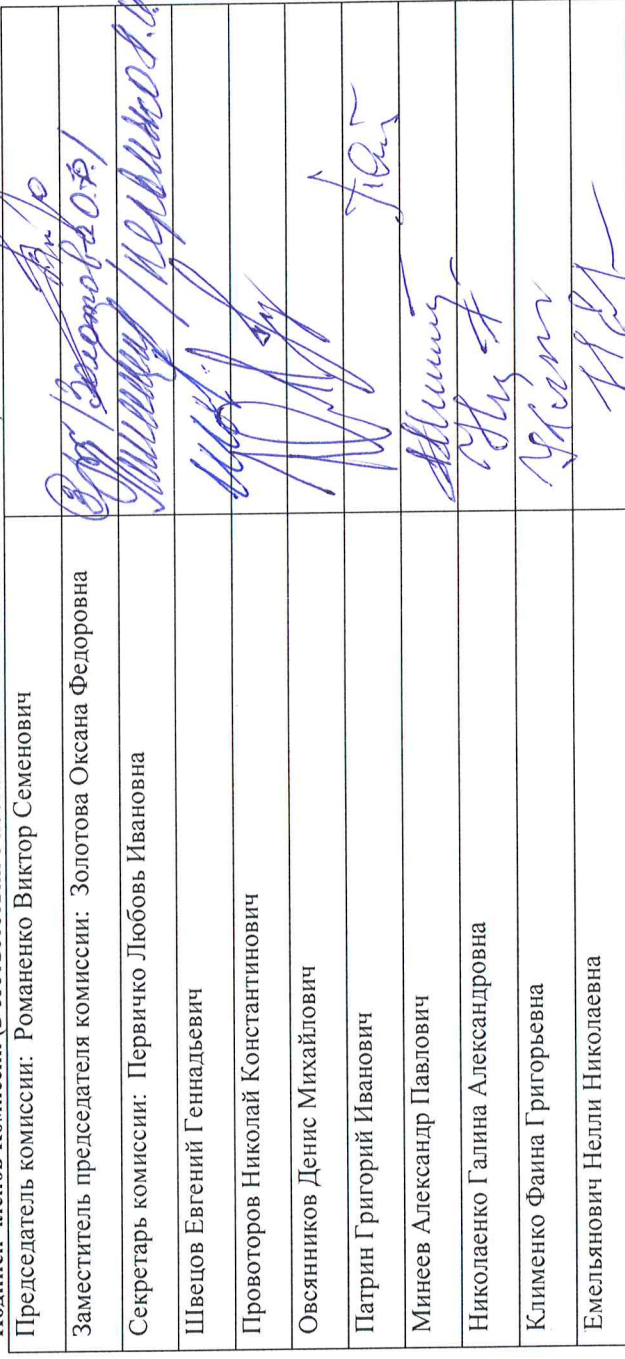 Председатель комиссии: Романенко Виктор Семенович
Заместитель председателя комиссии: Золотова Оксана Федоровна
/Золотова О.Ф./
Секретарь комиссии: Первичко Любовь Ивановна
Швецов Евгений Геннадьевич
Провоторов Николай Константинович
Овсянников Денис Михайлович
Патрин Григорий Иванович
Минеев Александр Павлович
Николаенко Галина Александровна
Клименко Фаина Григорьевна
Емельянович Нелли Николаевна